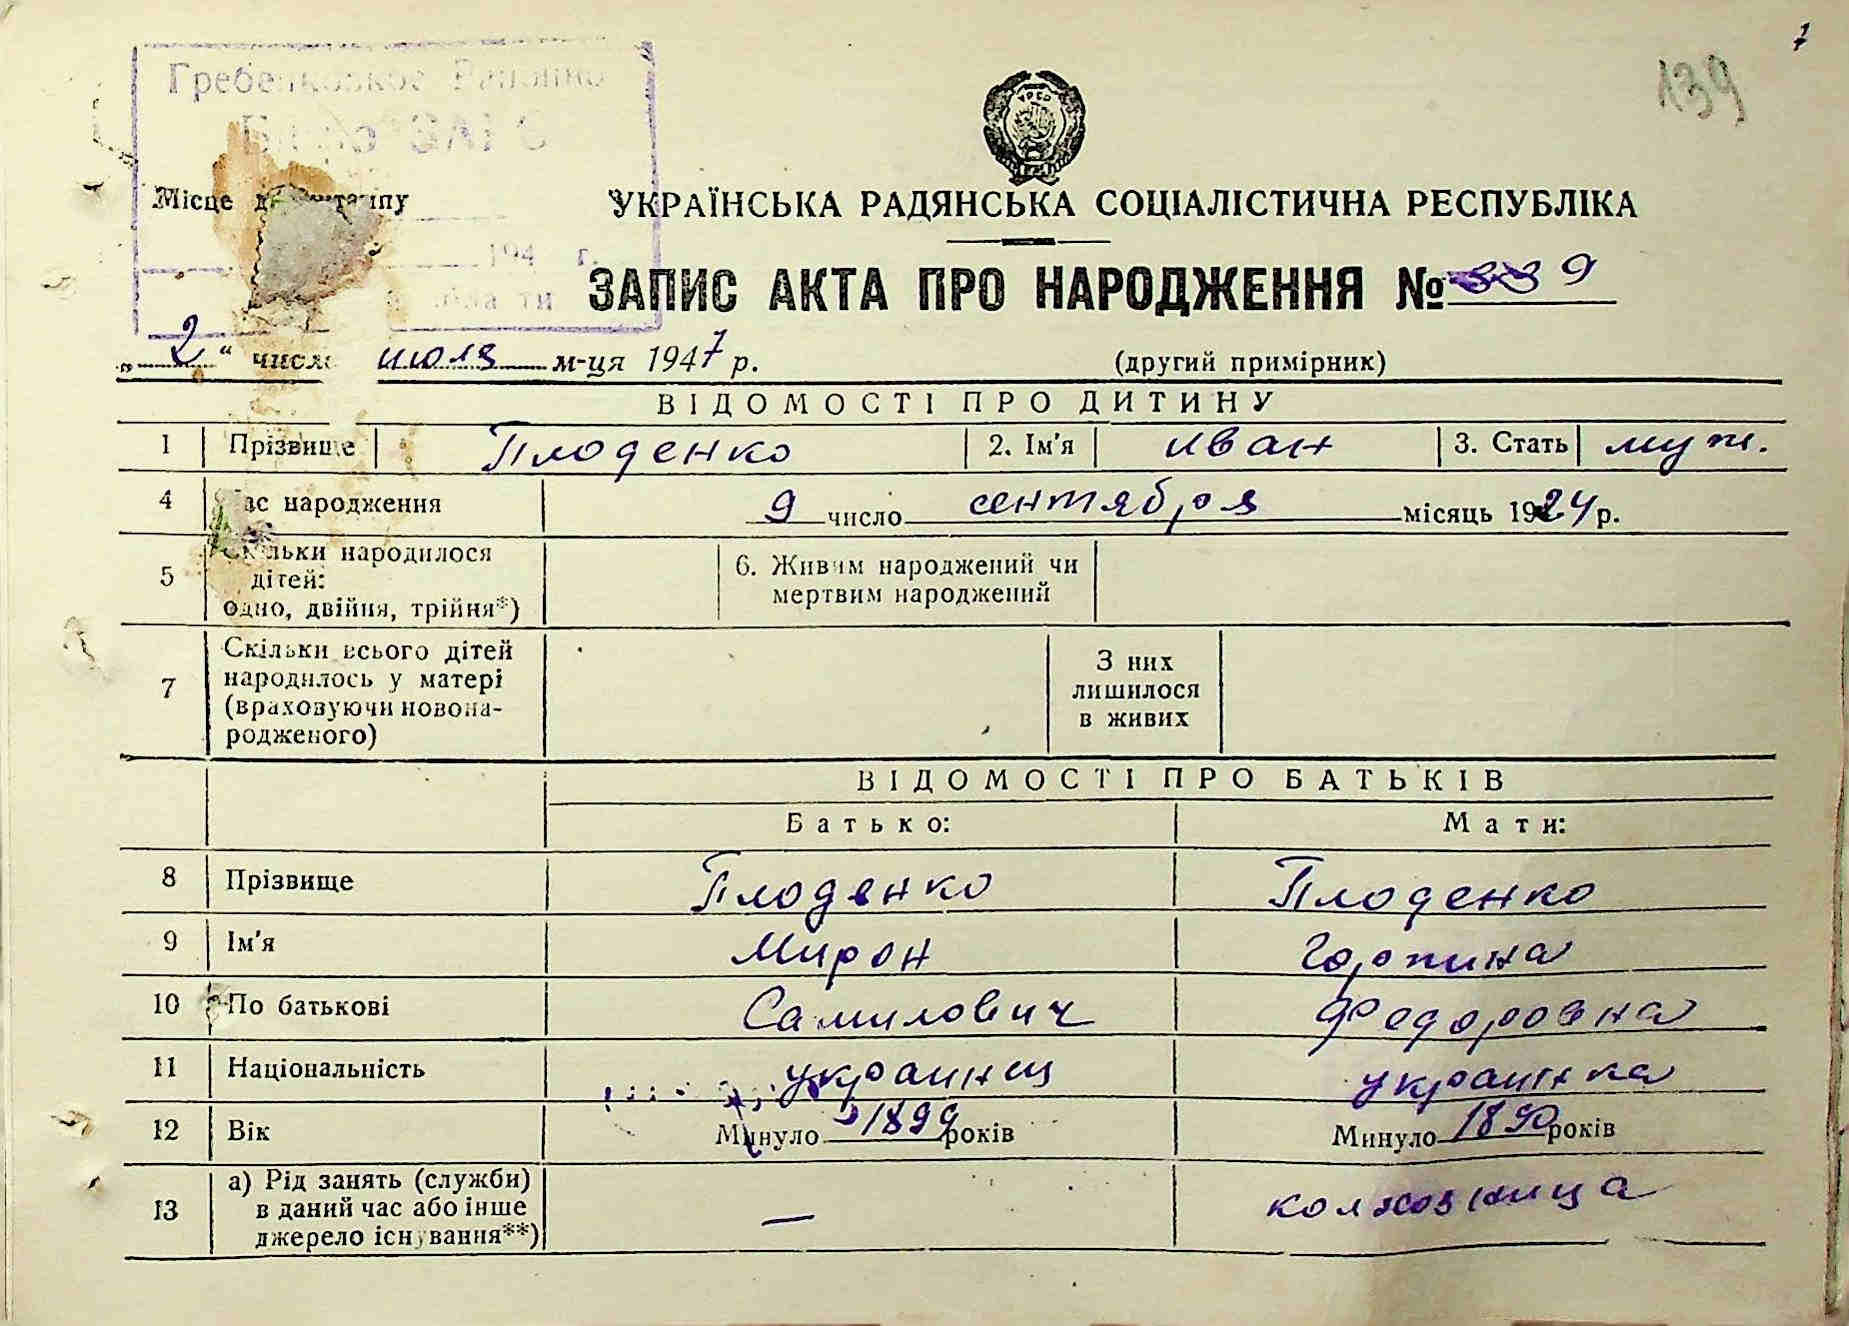 7
139
Гребенковское Районно
Бюро ЗАГС
УРСР
Місце для штампу
УКРАЇНСЬКА РАДЯНСЬКА СОЦІАЛІСТИЧНА РЕСПУБЛІКА
194 г.
ЗАПИС АКТА ПРО НАРОДЖЕННЯ № 339
„2“ число июля м-ця 1947 р.
(другий примірник)
ВІДОМОСТІ ПРО ДИТИНУ
1 Прізвище Плоденко 2. Ім'я Иван 3. Стать муж.
4 Час народження 9 число сентября місяць 1924 р.
5 Скільки народилося
дітей:
одно, двійня, трійня*)
6. Живим народжений чи
мертвим народжений
7 Скільки всього дітей
народилось у матері
(враховуючи новона-
родженого)
З них
лишилося
в живих
ВІДОМОСТІ ПРО БАТЬКІВ
Батько: Мати:
8 Прізвище Плоденко Плоденко
9 Ім'я Мирон Горпина
10 По батькові Самилович Федоровна
11 Національність украинец украинка
12 Вік Минуло 1899 років Минуло 1890 років
13 а) Рід занять (служби)
в даний час або інше
джерело існування**)
— колхозница